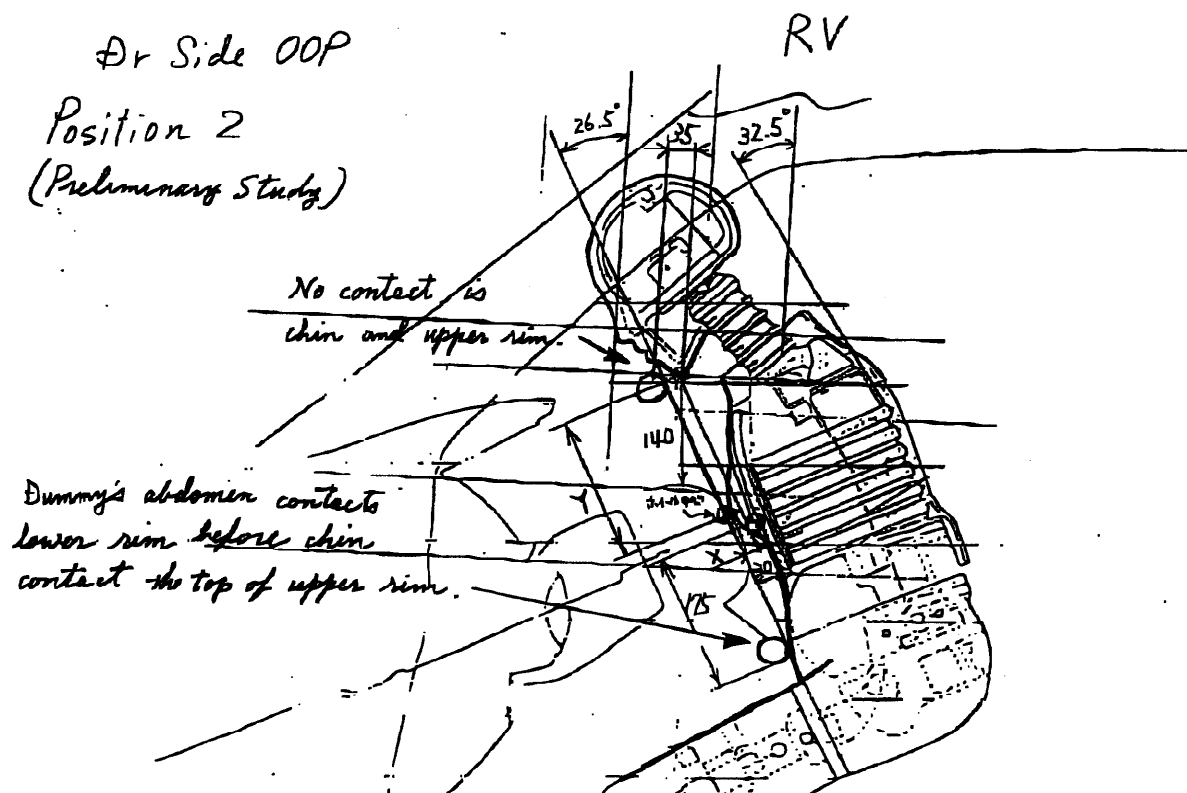 Dr Side OOP
RV
Position 2
(Preliminary Study)
26.5°
35
32.5°
No contact is
chin and upper rim.
140
Y
Dummy's abdomen contacts
lower rim before chin
contact the top of upper rim.
X
175